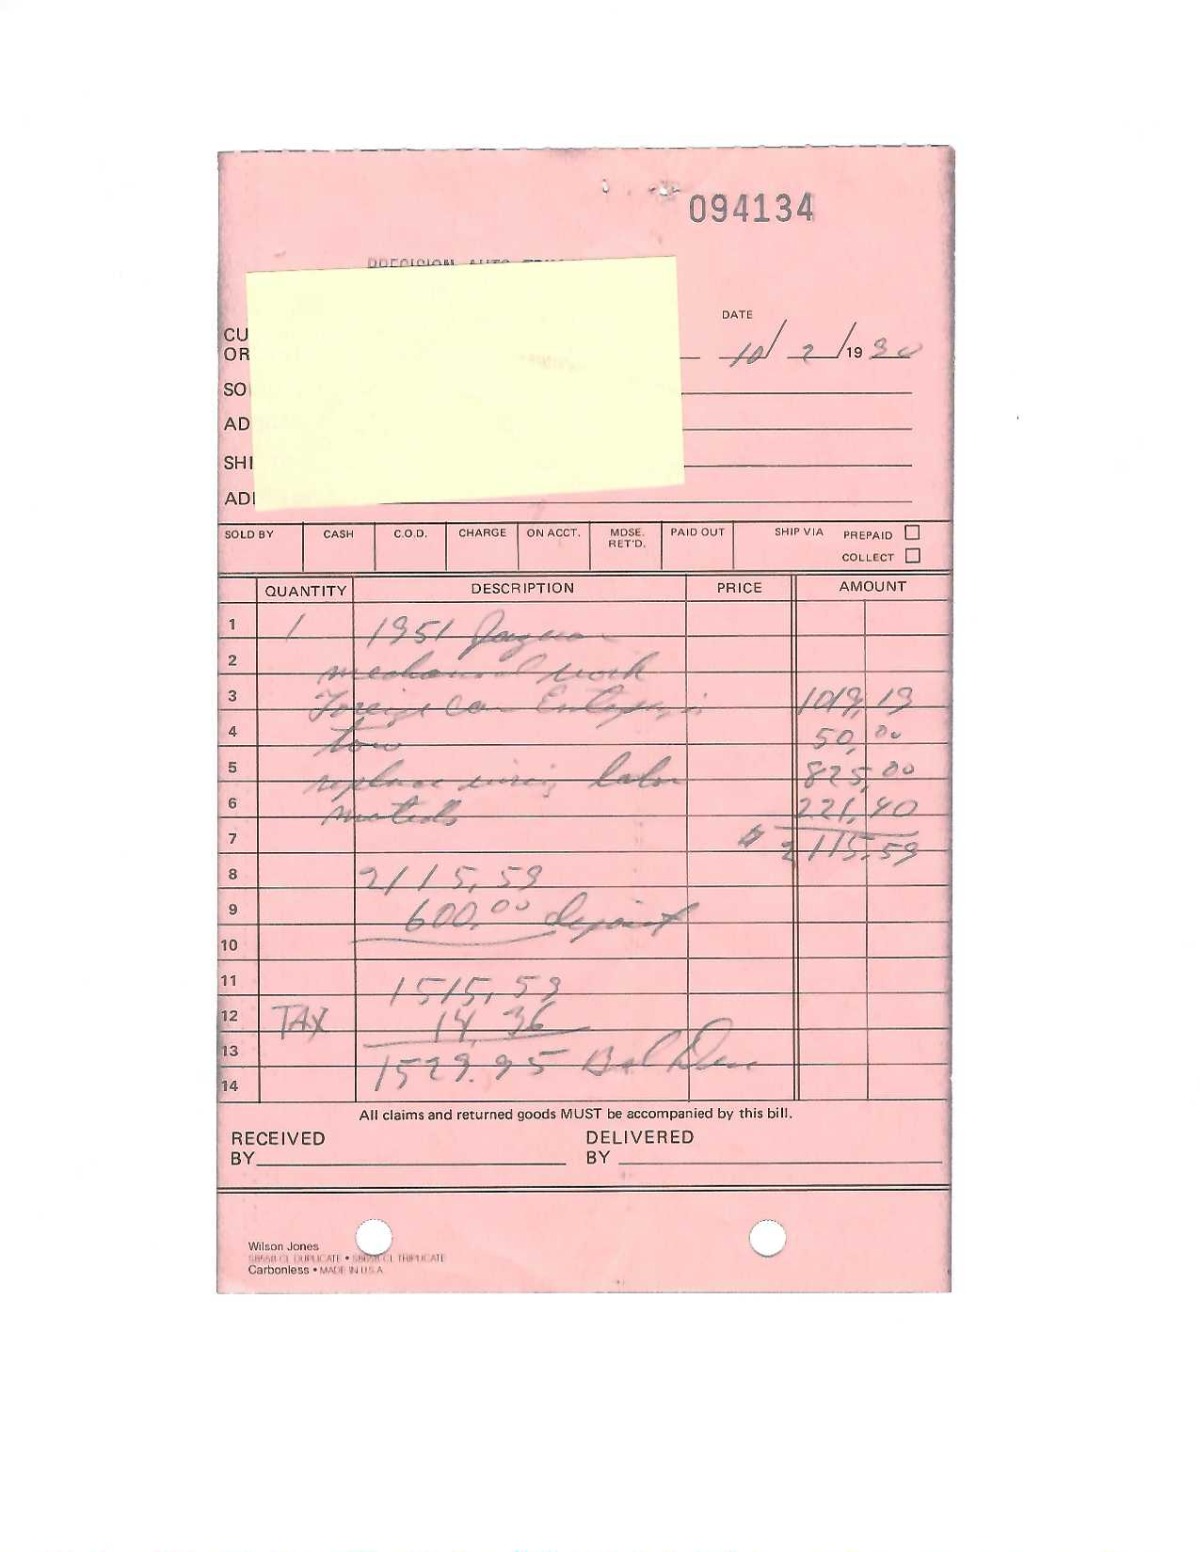 094134
PRECISION AUTO TRIM
DATE
CU
OR
10/ 2 /19 90
SO
AD
SHI
ADI
SOLD BY CASH C.O.D. CHARGE ON ACCT. MDSE. RET'D. PAID OUT SHIP VIA PREPAID
COLLECT
QUANTITY DESCRIPTION PRICE AMOUNT
1 1 1951 Jaguar
2 mechanical work
3 Foreign Car 1019,19
4 tow 50,00
5 replace wiring labor 825,00
6 materials 221,40
7 $ 2115,59
8 2115,59
9 600,00 deposit
10
11 1515,59
12 TAX 14,36
13 1529.95 Bal Due
14
All claims and returned goods MUST be accompanied by this bill.
RECEIVED BY
DELIVERED BY
Wilson Jones
S8658 CL DUPLICATE • S8659 CL TRIPLICATE
Carbonless • MADE IN U.S.A.